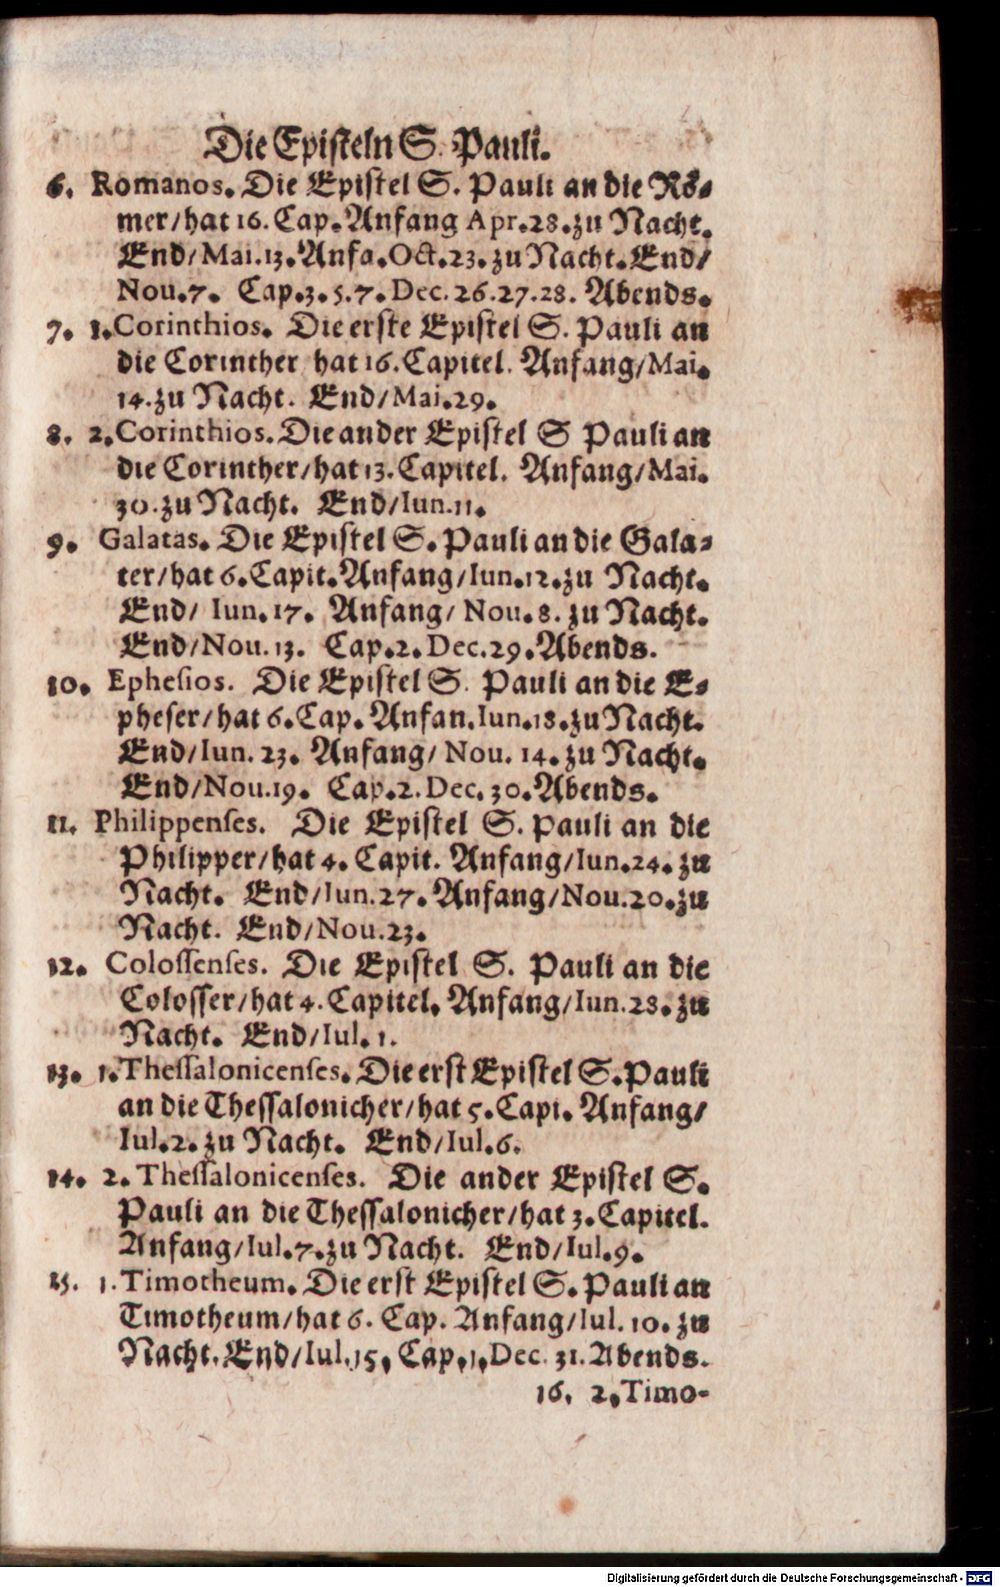 Die Episteln S. Pauli.
6. Romanos. Die Epistel S. Pauli an die Rö-
mer/hat 16. Cap. Anfang Apr. 28. zu Nacht.
End/Mai. 13. Anfa. Oct. 23. zu Nacht. End/
Nou. 7. Cap. 3. 5. 7. Dec. 26. 27. 28. Abends.
7. 1. Corinthios. Die erste Epistel S. Pauli an
die Corinther hat 16. Capitel. Anfang/Mai.
14. zu Nacht. End/Mai. 29.
8. 2. Corinthios. Die ander Epistel S Pauli an
die Corinther/hat 13. Capitel. Anfang/Mai.
30. zu Nacht. End/Iun. 11.
9. Galatas. Die Epistel S. Pauli an die Gala-
ter/hat 6. Capit. Anfang/Iun. 12. zu Nacht.
End/ Iun. 17. Anfang/ Nou. 8. zu Nacht.
End/Nou. 13. Cap. 2. Dec. 29. Abends.
10. Ephesios. Die Epistel S. Pauli an die E-
pheser/hat 6. Cap. Anfan. Iun. 18. zu Nacht.
End/Iun. 23. Anfang/ Nou. 14. zu Nacht.
End/Nou. 19. Cap. 2. Dec. 30. Abends.
11. Philippenses. Die Epistel S. Pauli an die
Philipper/hat 4. Capit. Anfang/Iun. 24. zu
Nacht. End/Iun. 27. Anfang/Nou. 20. zu
Nacht. End/Nou. 23.
12. Colossenses. Die Epistel S. Pauli an die
Colosser/hat 4. Capitel. Anfang/Iun. 28. zu
Nacht. End/Iul. 1.
13. 1. Thessalonicenses. Die erst Epistel S. Pauli
an die Thessalonicher/hat 5. Capi. Anfang/
Iul. 2. zu Nacht. End/Iul. 6.
14. 2. Thessalonicenses. Die ander Epistel S.
Pauli an die Thessalonicher/hat 3. Capitel.
Anfang/Iul. 7. zu Nacht. End/Iul. 9.
15. 1. Timotheum. Die erst Epistel S. Pauli an
Timotheum/hat 6. Cap. Anfang/Iul. 10. zu
Nacht. End/Iul. 15. Cap. 1. Dec. 31. Abends.
16. 2. Timo-
Digitalisierung gefördert durch die Deutsche Forschungsgemeinschaft - DFG